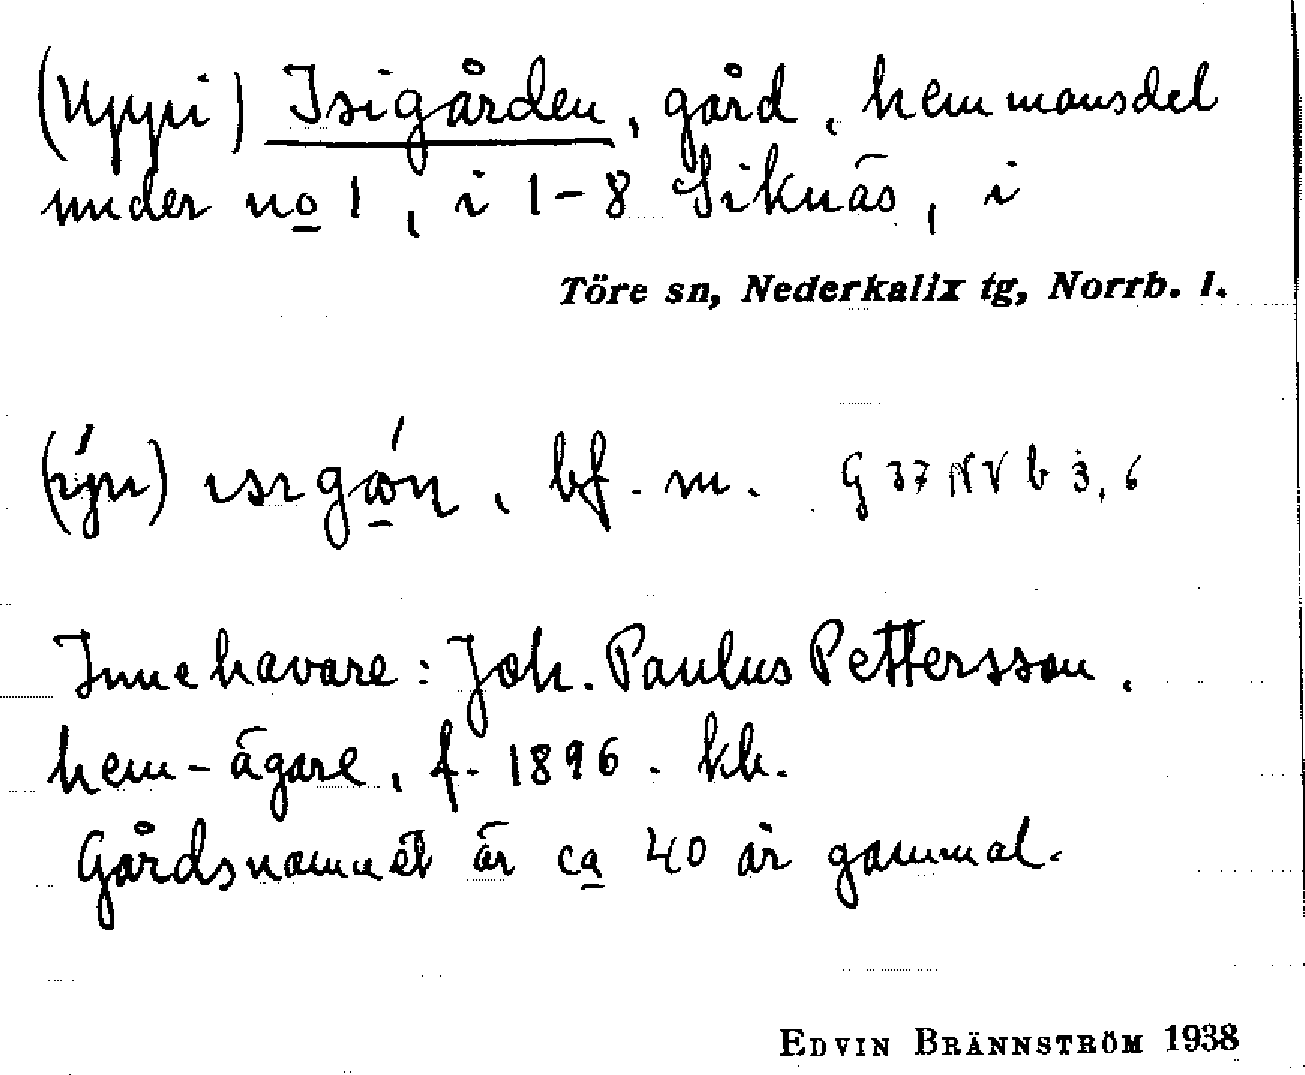 (Uppi) Isigården, gård, hemmansdel
under no 1, i 1-8 Siknäs, i
Töre sn, Nederkalix tg, Norrb. l.
bf. m. G 37 NV b 3, 6
Innehavare: Joh. Paulus Pettersson,
hem-ägare, f. 1896. kh.
Gårdsnamnet är ca 40 år gammal.
EDVIN BRÄNNSTRÖM 1938